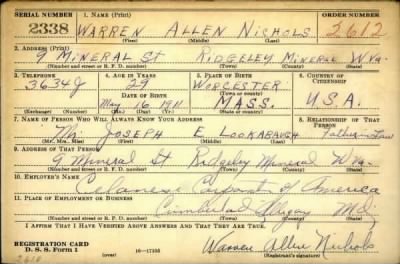 SERIAL NUMBER 1. NAME (Print) ORDER NUMBER
2338 WARREN ALLEN NICHOLS 2612
(First) (Middle) (Last)
2. ADDRESS (Print)
9 MINERAL ST RIDGELEY MINERAL W VA.
(Number and street or R. F. D. number) (Town) (County) (State)
3. TELEPHONE 4. AGE IN YEARS 5. PLACE OF BIRTH 6. COUNTRY OF CITIZENSHIP
3634J 29 WORCESTER
DATE OF BIRTH (Town or county)
May 16 1911 MASS. U.S.A.
(Exchange) (Number) (Mo.) (Day) (Yr.) (State or country)
7. NAME OF PERSON WHO WILL ALWAYS KNOW YOUR ADDRESS 8. RELATIONSHIP OF THAT PERSON
Mr. JOSEPH E LOOKABAUGH Father in Law
(Mr., Mrs., Miss) (First) (Middle) (Last)
9. ADDRESS OF THAT PERSON
9 Mineral St Ridgeley Mineral W Va.
(Number and street or R. F. D. number) (Town) (County) (State)
10. EMPLOYER'S NAME
Celanese Corporat of America
11. PLACE OF EMPLOYMENT OR BUSINESS
Cumberland Allegany Md
(Number and street or R. F. D. number) (Town) (County) (State)
I AFFIRM THAT I HAVE VERIFIED ABOVE ANSWERS AND THAT THEY ARE TRUE.
REGISTRATION CARD
D. S. S. Form 1 16—17105 Warren Allen Nichols
(over) (Registrant's signature)